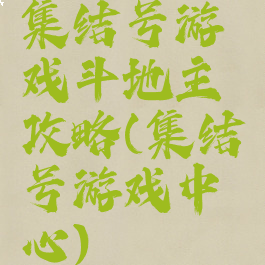 集结号游
戏斗地主
攻略(集结
号游戏中
心)